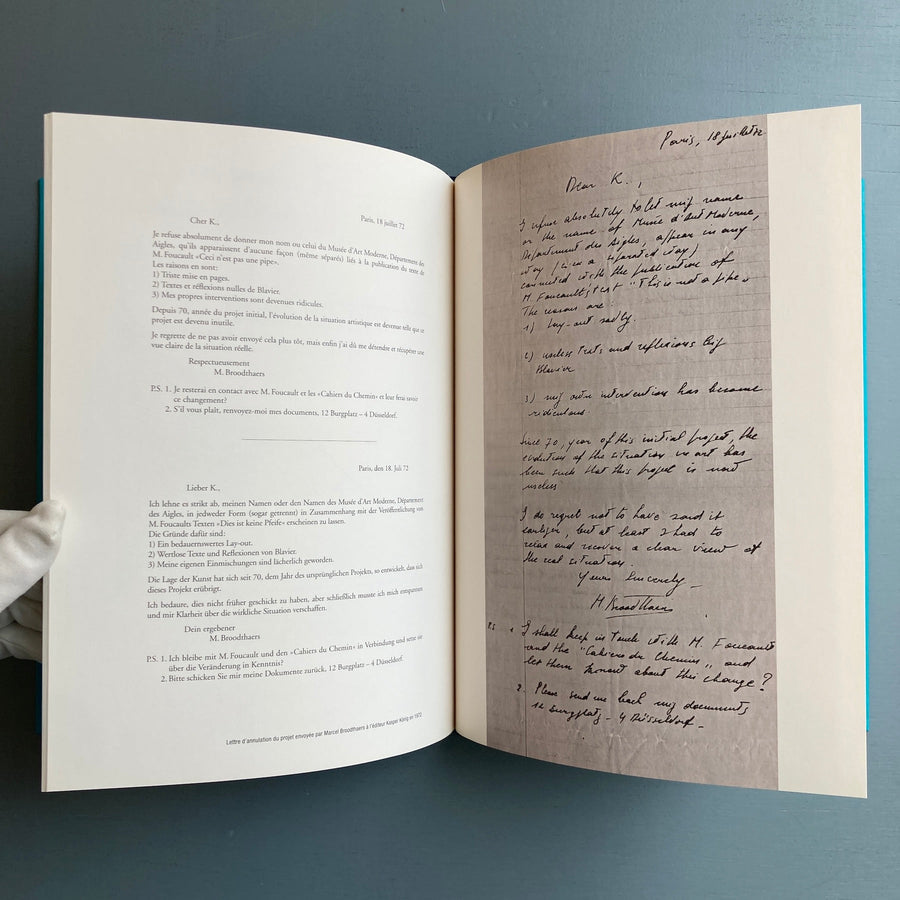 Cher K.,
Paris, 18 juillet 72
Je refuse absolument de donner mon nom ou celui du Musée d'Art Moderne, Département des
Aigles, qu'ils apparaissent d'aucune façon (même séparés) liés à la publication du texte de
M. Foucault «Ceci n'est pas une pipe».
Les raisons en sont:
1) Triste mise en pages.
2) Textes et réflexions nulles de Blavier.
3) Mes propres interventions sont devenues ridicules.
Depuis 70, année du projet initial, l'évolution de la situation artistique est devenue telle que ce
projet est devenu inutile.
Je regrette de ne pas avoir envoyé cela plus tôt, mais enfin j'ai dû me détendre et récupérer une
vue claire de la situation réelle.
Respectueusement
M. Broodthaers
P.S. 1. Je resterai en contact avec M. Foucault et les «Cahiers du Chemin» et leur ferai savoir
ce changement?
2. S'il vous plaît, renvoyez-moi mes documents, 12 Burgplatz – 4 Düsseldorf.
Paris, den 18. Juli 72
Lieber K.,
Ich lehne es strikt ab, meinen Namen oder den Namen des Musée d'Art Moderne, Département
des Aigles, in jedweder Form (sogar getrennt) in Zusammenhang mit der Veröffentlichung von
M. Foucaults Texten »Dies ist keine Pfeif« erscheinen zu lassen.
Die Gründe dafür sind:
1) Ein bedauernswertes Lay-out.
2) Wertlose Texte und Reflexionen von Blavier.
3) Meine eigenen Einmischungen sind lächerlich geworden.
Die Lage der Kunst hat sich seit 70, dem Jahr des ursprünglichen Projekts, so entwickelt, dass sich
dieses Projekt erübrigt.
Ich bedaure, dies nicht früher geschickt zu haben, aber schließlich musste ich mich entspannen
und mir Klarheit über die wirkliche Situation verschaffen.
Dein ergebener
M. Broodthaers
P.S. 1. Ich bleibe mit M. Foucault und den »Cahiers du Chemin« in Verbindung und setze sie
über die Veränderung in Kenntnis?
2. Bitte schicken Sie mir meine Dokumente zurück, 12 Burgplatz – 4 Düsseldorf.
Lettre d'annulation du projet envoyée par Marcel Broodthaers à l'éditeur Kasper König en 1972
Paris, 18 Juillet 72
Dear K.,
I refuse absolutely to let my name
or the name of Musée d'Art Moderne,
Département des Aigles, appear in any
way (even in a separated way)
connected with the publication of
M. Foucault's text "This is not a pipe".
The reasons are:
1) Lay-out sadly.
2) useless texts and reflexions by
Blavier
3) my own interventions has become
ridiculous.
Since 70, year of this initial project, the
evolution of the situation in art has
been such that this project is now
useless.
I do regret not to have send it
earlier, but at least I had to
relax and recover a clear view of
the real situation.
Yours Sincerely –
M. Broodthaers
P.S 1. I shall keep in touch with M. Foucault
and the "Cahiers du Chemin", and
let them know about this change?
2. Please send me back my documents
12 Burgplatz – 4 Düsseldorf –